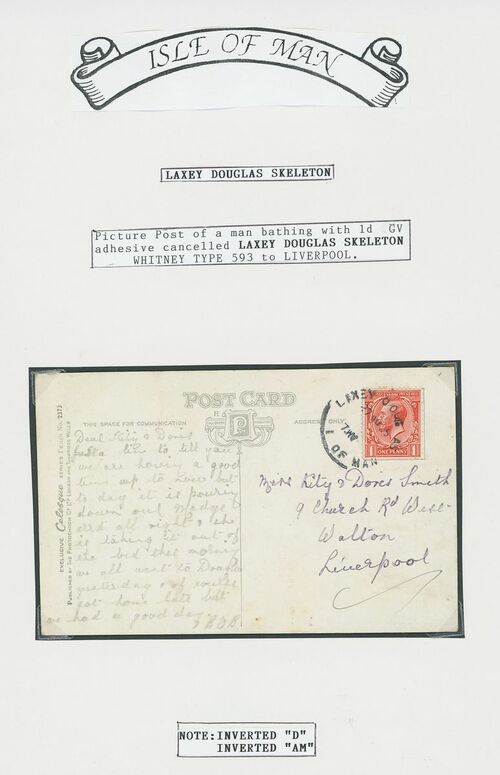 ISLE OF MAN
LAXEY DOUGLAS SKELETON
Picture Post of a man bathing with 1d GV
adhesive cancelled LAXEY DOUGLAS SKELETON
WHITNEY TYPE 593 to LIVERPOOL.
POST CARD
THIS SPACE FOR COMMUNICATION
ADDRESS ONLY
EXCLUSIVE Celesque SERIES
PUBLISHED BY THE PHOTOCHROM CO. LTD. LONDON AND TUNBRIDGE WELLS
Dear Kity & Doris
Just a line to tell you
we are having a good
time up to now but
to day it is pouring
down our Madge
all right & she
is taking it out of
the bed this morning
we all went to Douglas
yesterday & of course
got home late but
we had a good day.
LAXEY DOUG
I OF MAN
ONE PENNY
Miss Kity & Doris Smith
9 Church Rd West
Walton
Liverpool
NOTE:INVERTED "D"
INVERTED "AM"